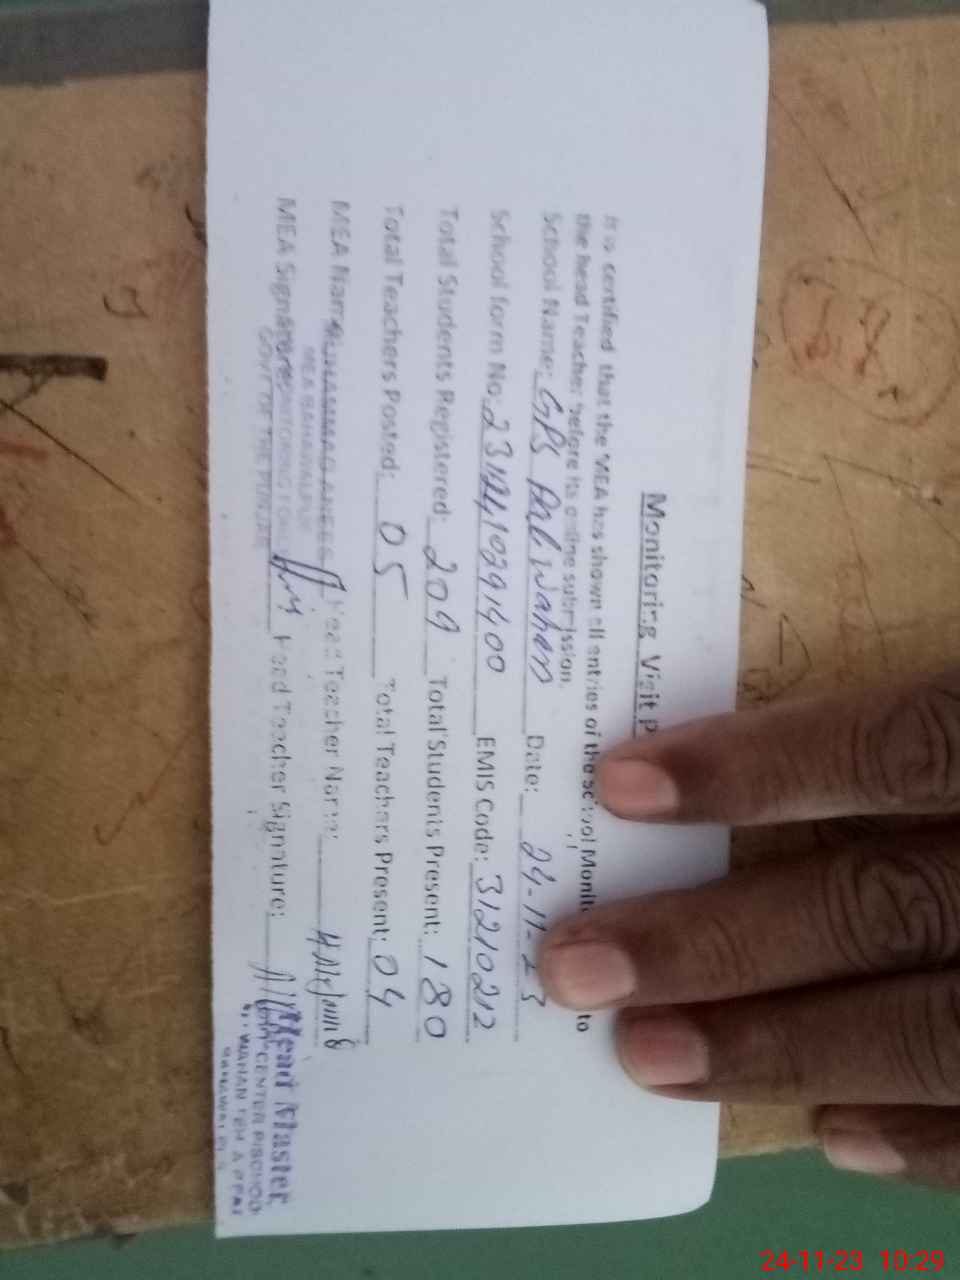 Monitoring Visit P
It is certified that the MEA has shown all entries of the school Monito to
the head Teacher before its online submission.
School Name: GPS Pal Wahan Date: 24-11-23
School form No. EMIS Code: 31210212
Total Students Registered: 209 Total Students Present: 180
Total Teachers Posted: 05 Total Teachers Present: 04
MEA Name: MUHAMMAD ANEES Head Teacher Name:
MEA BAHAWALPUR
MEA Signature: Head Teacher Signature:
GOVT OF THE PUNJAB
Head Master
CENTER
WAHAN
24-11-23 10:29